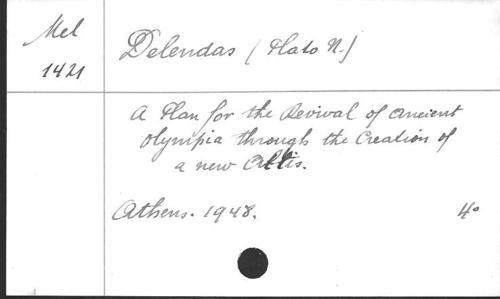 Mel
1421
Delendas (Plato N.)
A Plan for the Revival of Ancient
Olympia through the Creation of
a new Altis.
Athens. 1948.
4o